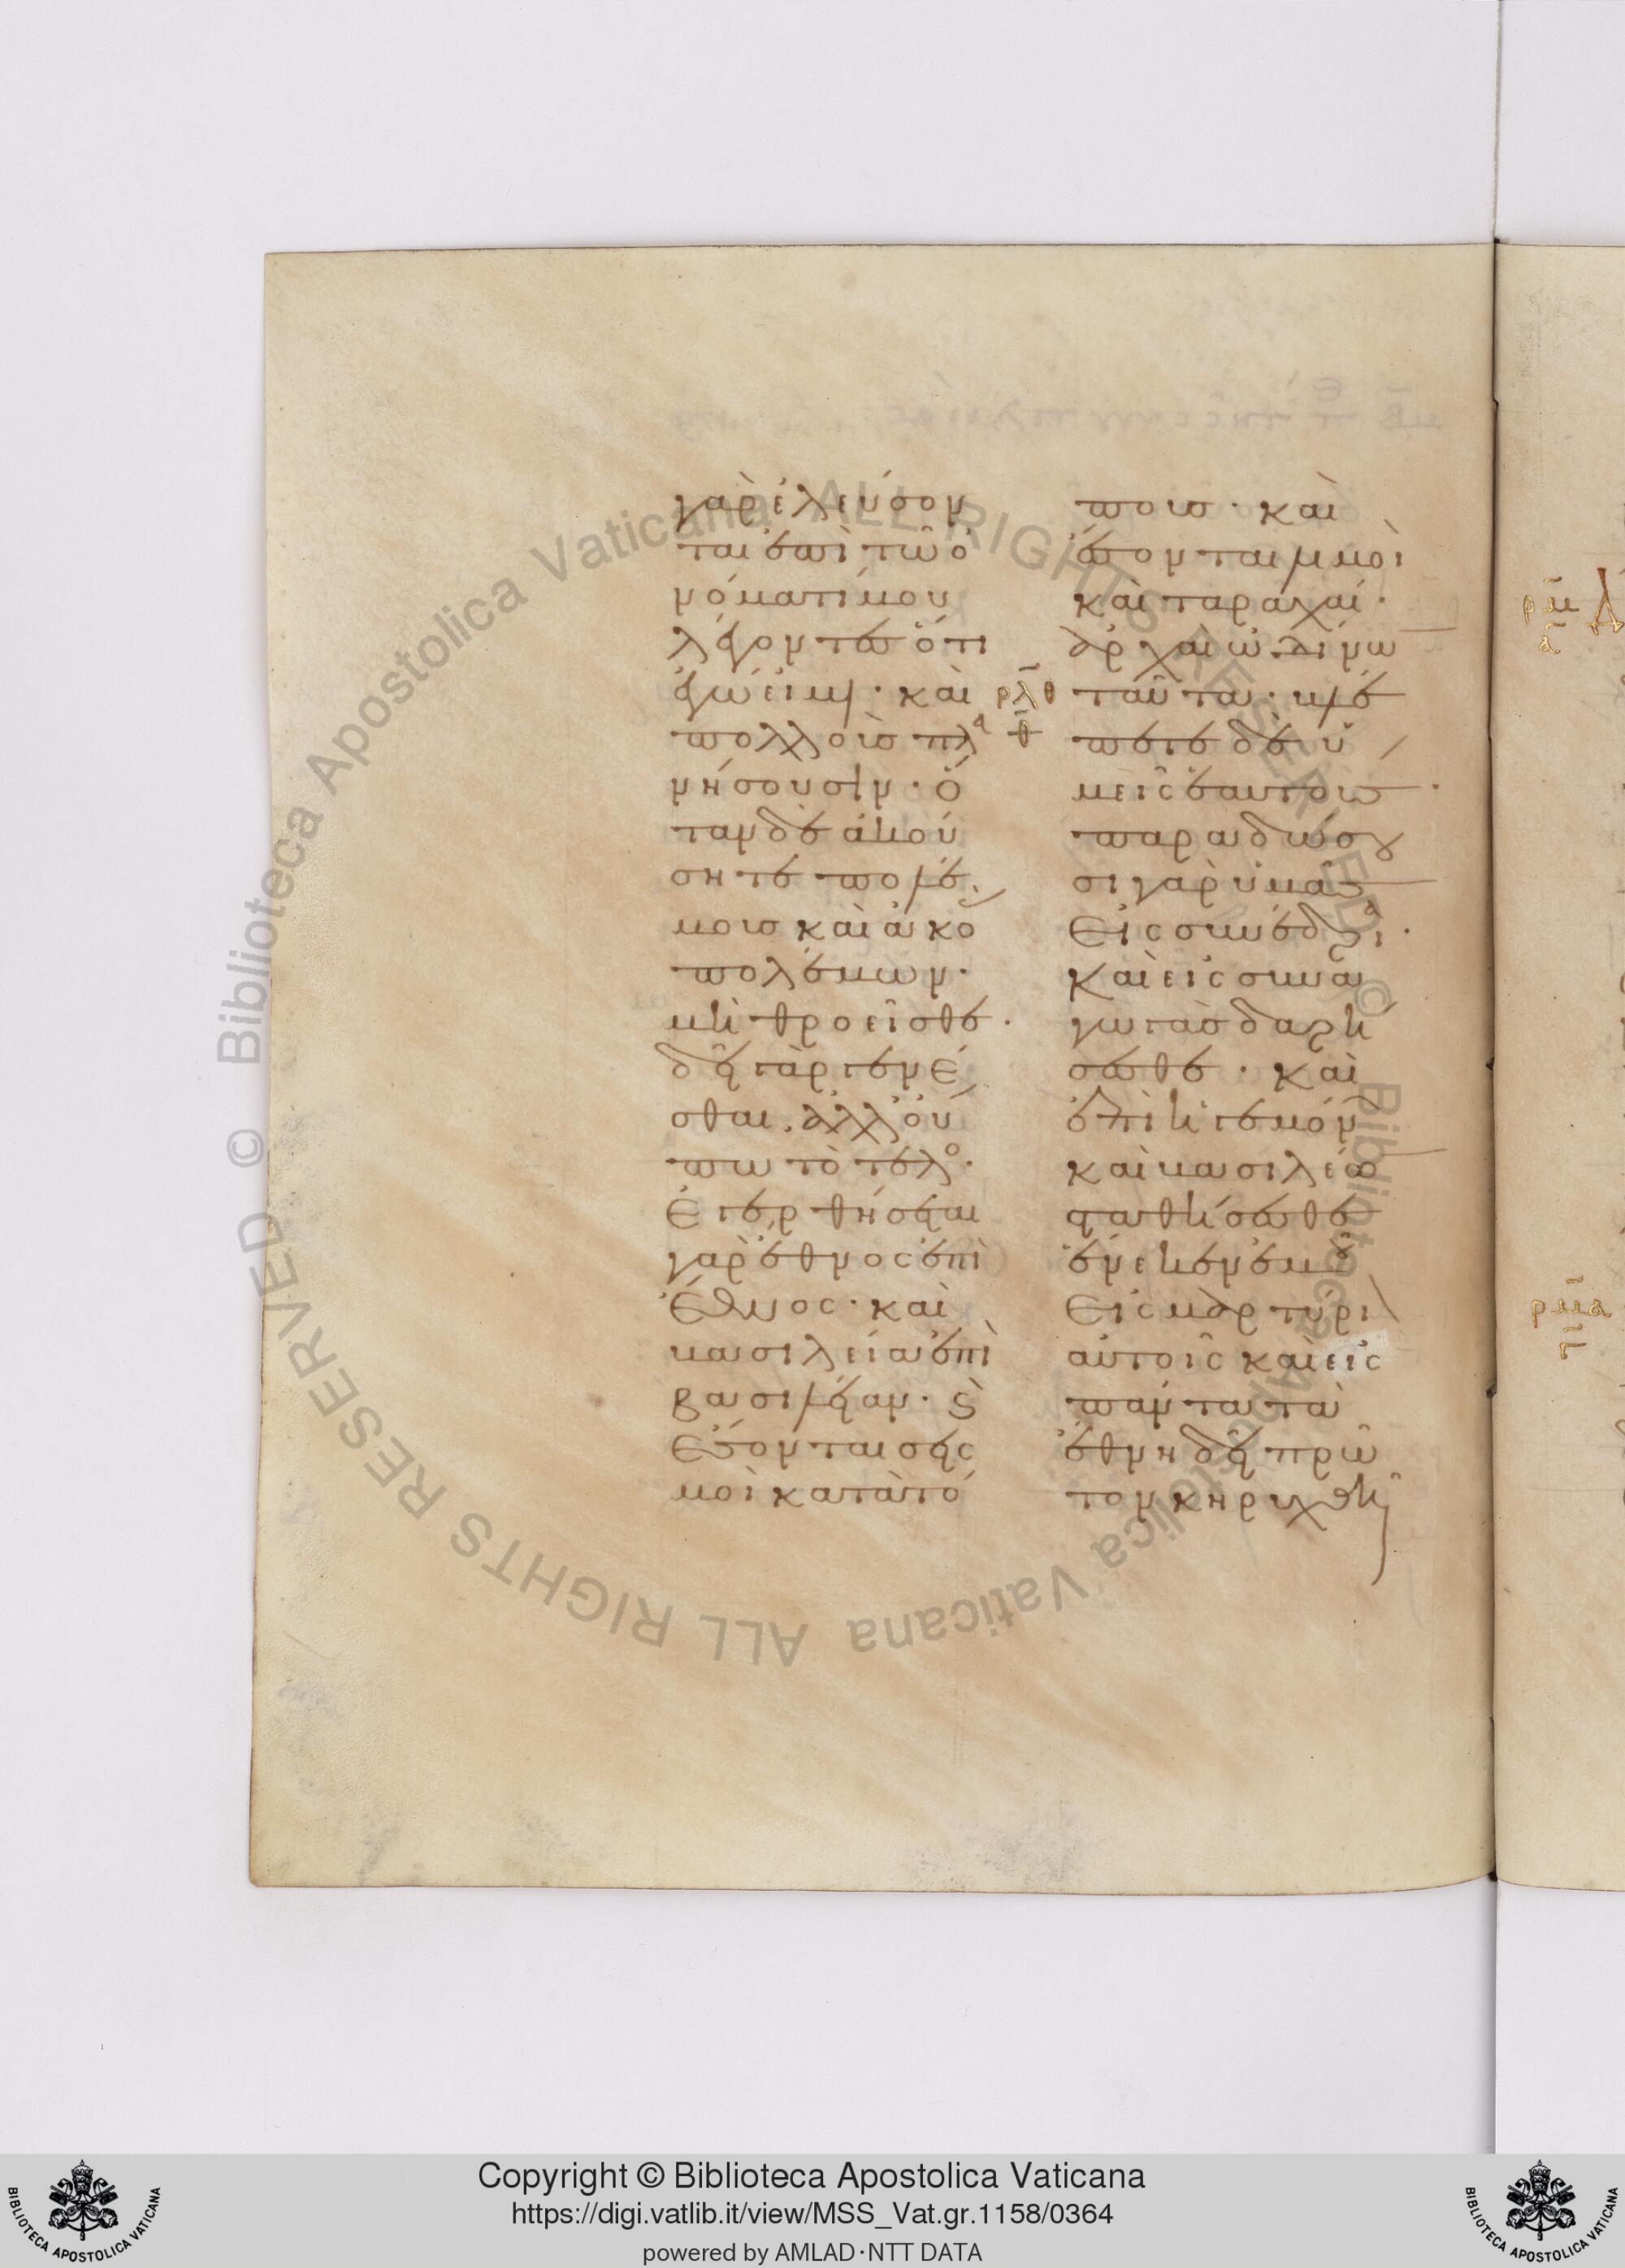 γὰρ ἐλεύσον
ται ἐπὶ τῶ ὀ
νόματί μου
λέγοντες ὅτι
ἐγώ εἰμι · καὶ
πολλοὺς πλα
νήσουσιν · ὅ
ταν δὲ ἀκού
σητε πολέ
μους καὶ ἀκο
πολέμων ·
μὴ θροεῖσθε ·
δεῖ γὰρ γενέ
σθαι . ἀλλ' οὔ
πω τὸ τέλο ·
Ἐγερθήσεται
γὰρ ἔθνος ἐπὶ
ἔθνος · καὶ
βασιλεία ἐπὶ
βασιλείαν · ϛ
ἔσονται σεις
μοὶ κατὰ τό
πους · καὶ
ἔσονται λιμοὶ
καὶ ταραχαί ·
ἀρχαὶ ὠδίνω
ρλθ ταῦτα · βλέ
β πετε δὲ ὑ
μεῖς ἑαυτούς ·
παραδώσου
σι γὰρ ὑμᾶς
εἰς συνέδρια ·
καὶ εἰς συνα
γωγὰς δαρή
σεσθε · καὶ
ἐπὶ ἡγεμόν
καὶ βασιλέων
σταθήσεσθε
ἕνεκεν ἐμοῦ
εἰς μαρτύρι
αὐτοῖς καὶ εἰς
πάντα τὰ
ἔθνη δεῖ πρῶ
τον κηρυχθῆ
ρμ
α
ρμα
© Biblioteca Apostolica Vaticana ALL RIGHTS RESERVED © Biblioteca Apostolica Vaticana ALL RIGHTS RESERVED
Copyright © Biblioteca Apostolica Vaticana
https://digi.vatlib.it/view/MSS_Vat.gr.1158/0364
powered by AMLAD·NTT DATA
BIBLIOTECA APOSTOLICA VATICANA
BIBLIOTECA APOSTOLICA VATICANA